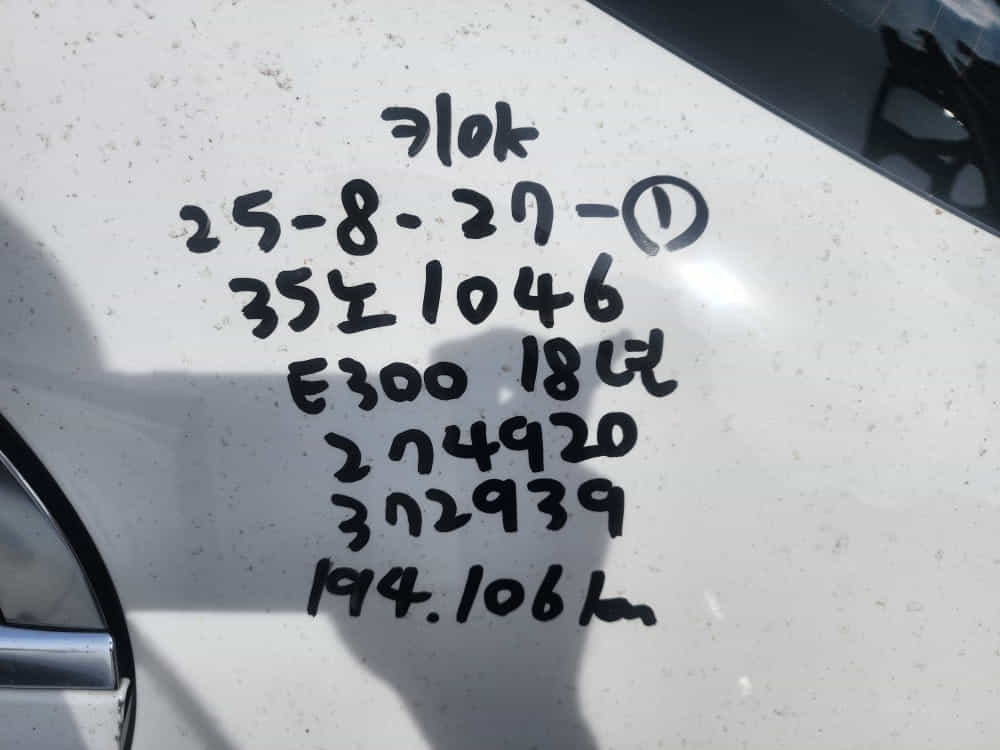 키ok
25-8-27-①
35노1046
E300 18년
274920
372939
194.106km